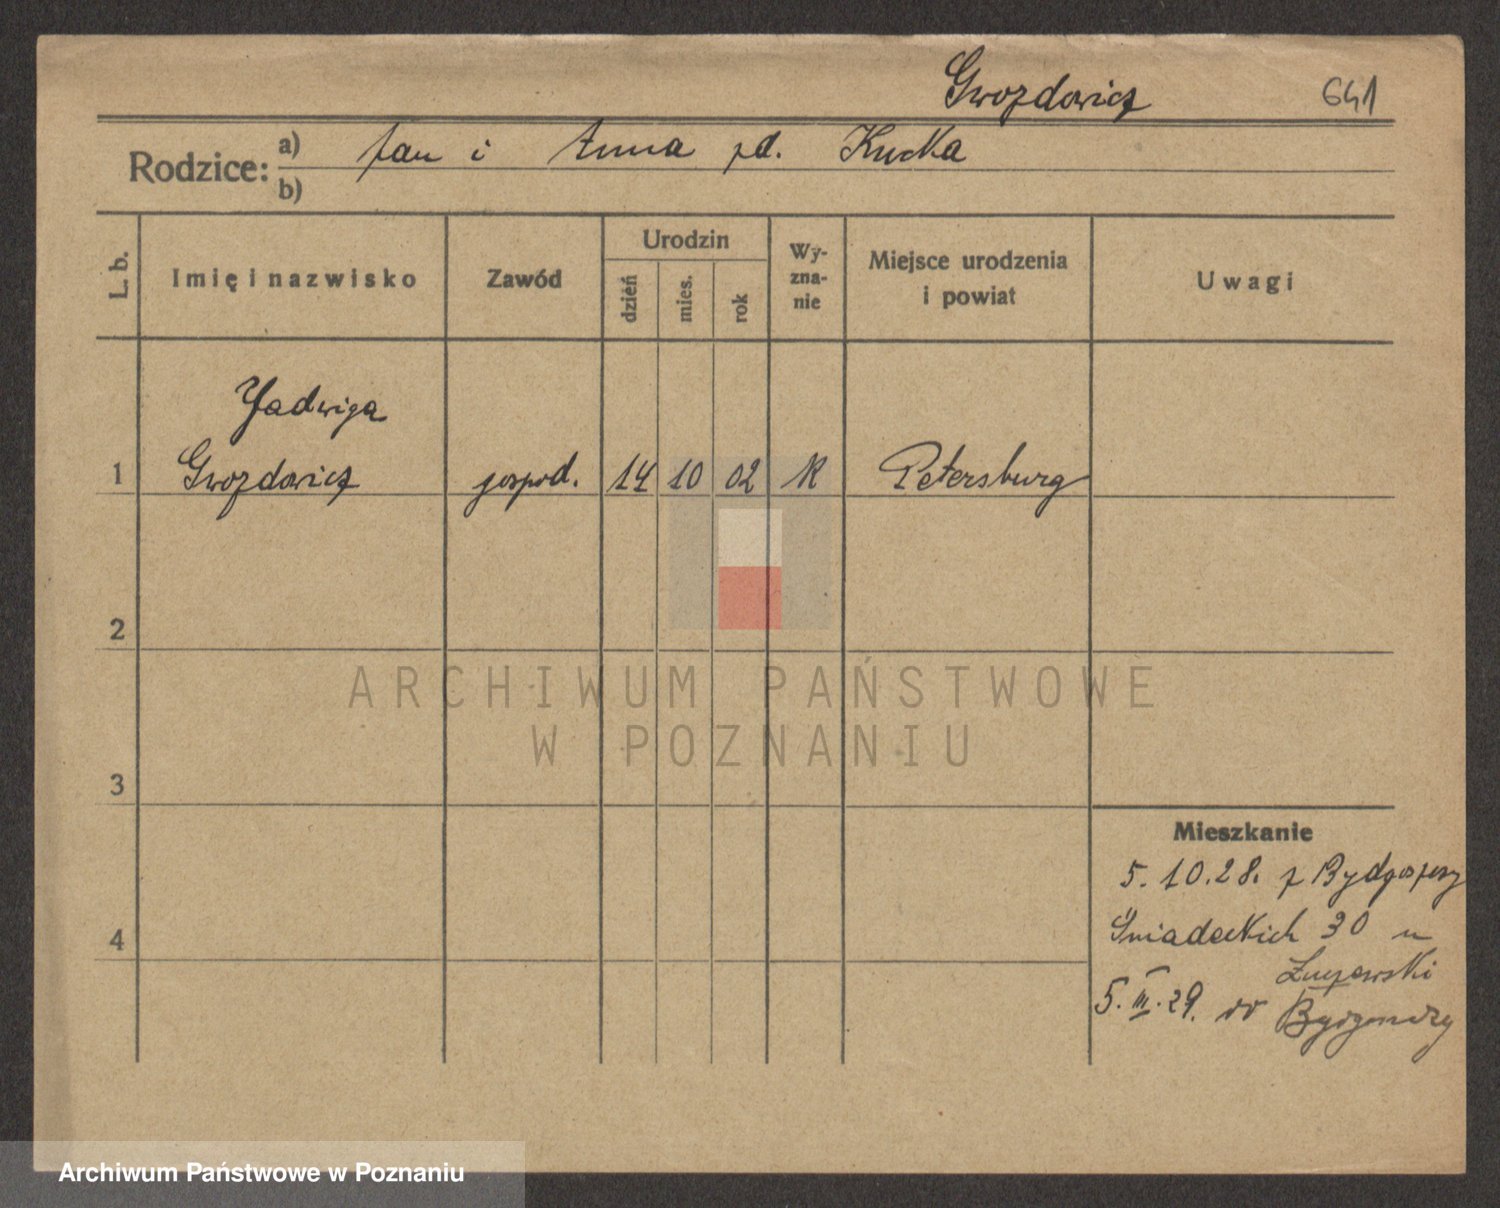 Gwozdowicz 641
Rodzice: a) Jan i Anna zd. Kucka
b)
L. b. Imię i nazwisko Zawód Urodzin dzień mies. rok Wy-zna-nie Miejsce urodzenia i powiat Uwagi
Jadwiga
1 Gwozdowicz gospod. 14 10 02 R Petersburg
2
ARCHIWUM PAŃSTWOWE
W POZNANIU
3
Mieszkanie
5.10.28. z Bydgoszczy
4 Śniadeckich 30 u
5.III.29. do Bydgoszczy
Archiwum Państwowe w Poznaniu